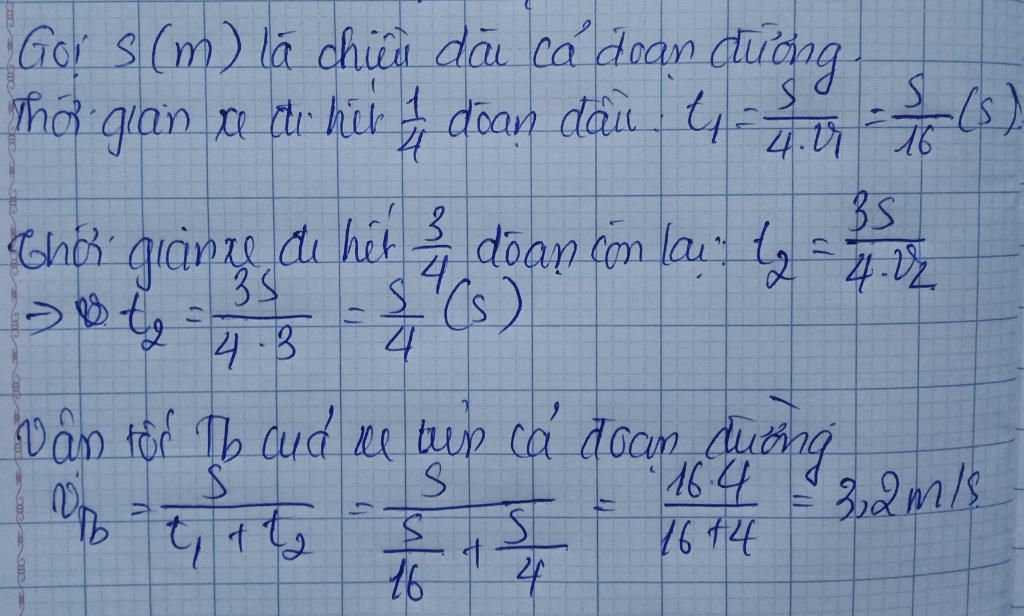 Gọi s (m) là chiều dài cả đoạn đường.
Thời gian xe đi hết 1/4 đoạn đầu: t₁ = s/(4.v₁) = s/16 (s)
Thời gian xe đi hết 3/4 đoạn còn lại: t₂ = 3s/(4.v₂)
=> t₂ = 3s/(4.3) = s/4 (s)
Vận tốc Tb của xe trên cả đoạn đường
v_Tb = s/(t₁ + t₂) = s/(s/16 + s/4) = 16.4/(16+4) = 3,2 m/s